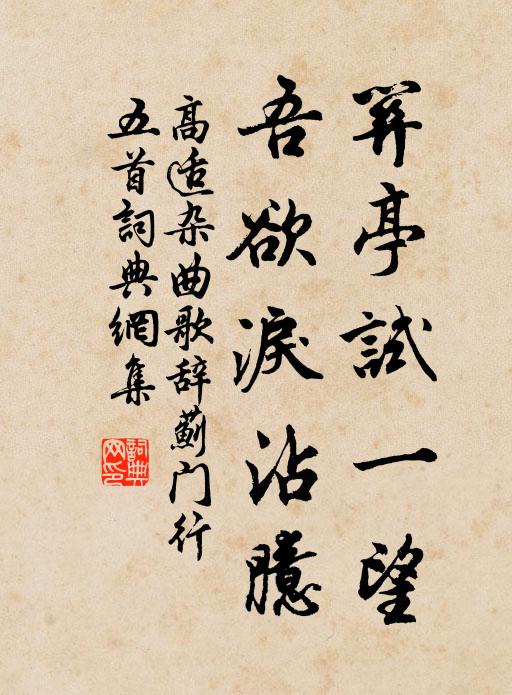 關亭試一望
吾欲淚沾臆
高适杂曲歌辞薊门行
五首詞典網集
詞典
网印